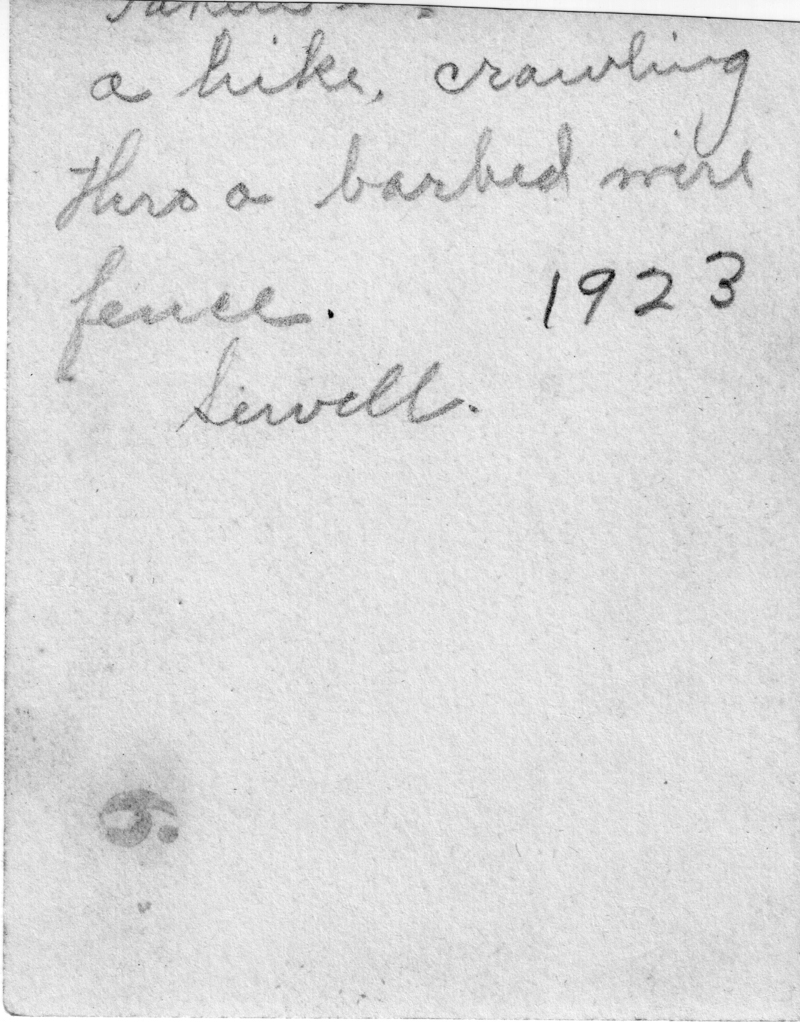 Taken
a hike, crawling
thro a barbed wire
fence. 1923
Sewell.